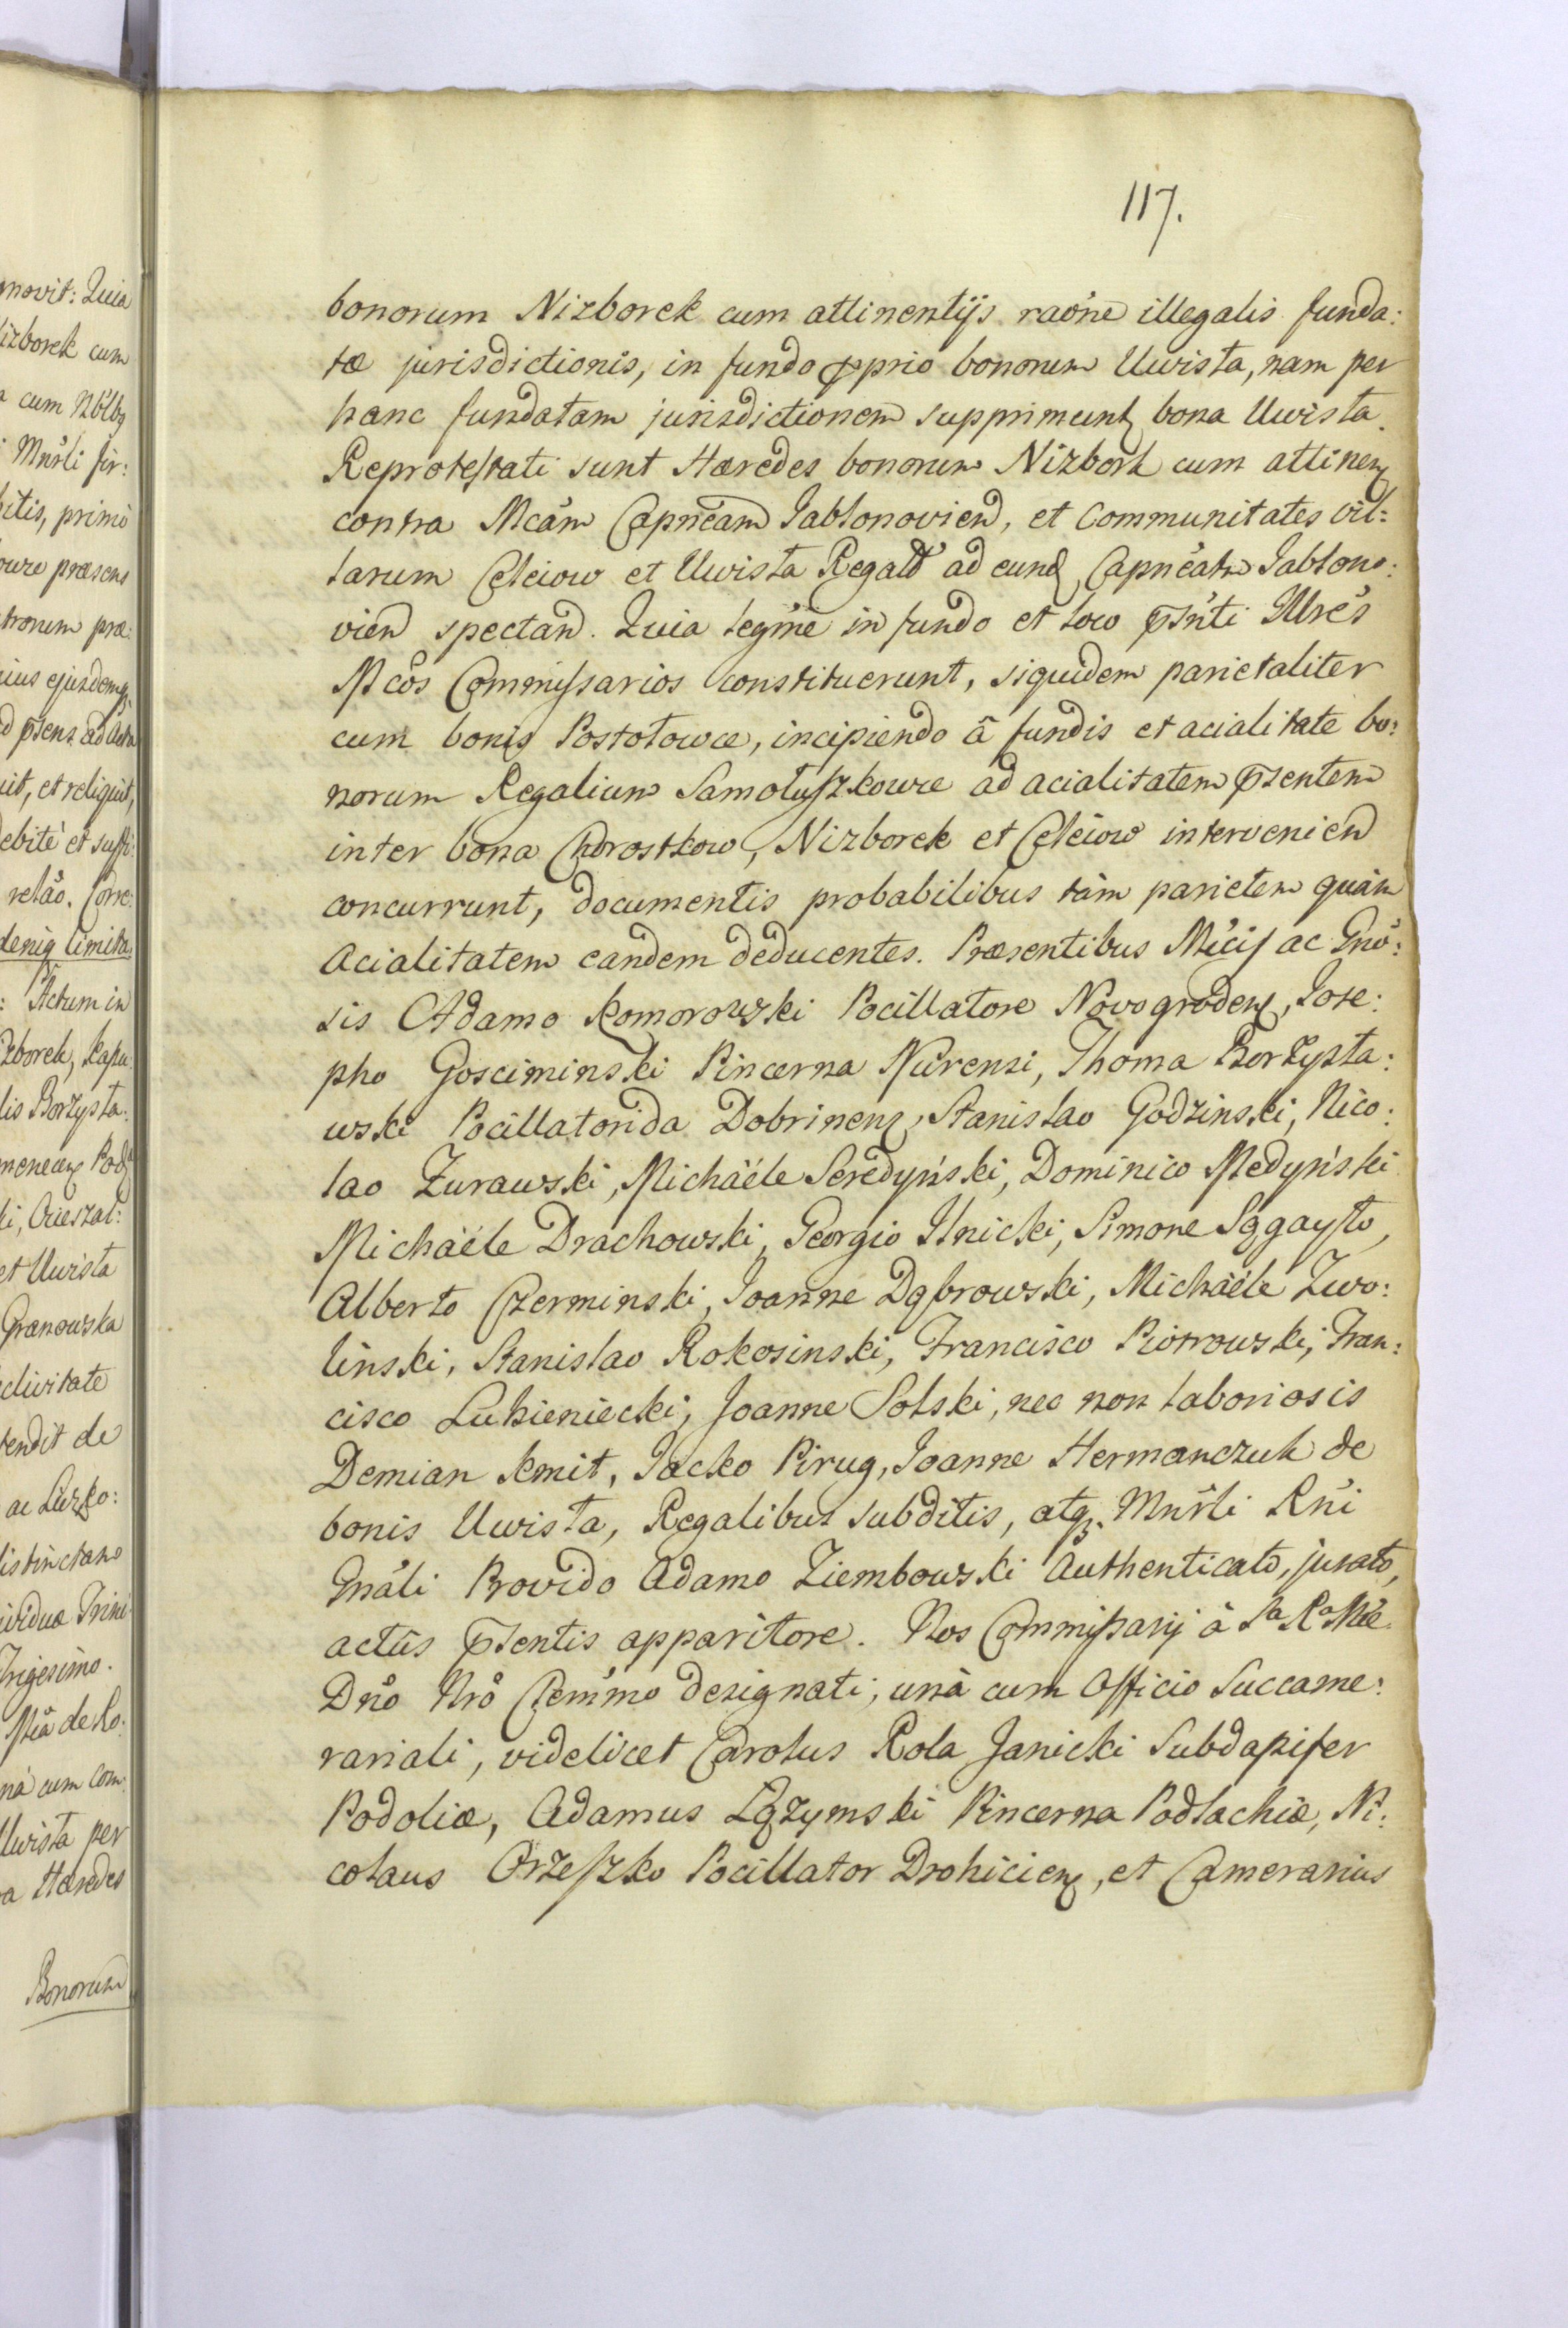 117.
bonorum Nizborek cum attinentijs raõne illegalis funda:
tæ jurisdictionis, in fundo pprio bonorum Uwisła, nam per
hanc fundatam jurisdictionem supprimunt bona Uwisła.
Reprotestati sunt Hæredes bonorum Nizbork cum attinen
contra Mcám Capnéam Jabłonovien, et Communitates vil:
larum Celeiow et Uwisła Regal ad eund Capnéam Jabłono:
vien spectan. Quia legme in fundo et loco psnti Illres
Mcos Commissarios constituerunt, siquidem parietaliter
cum bonis Postołowce, incipiendo â fundis et acialitate bo:
norum Regalium Samołuszkowce ad acialitatem psentem
inter bona Chorostkow, Nizborek et Celeiow intervenien
concurrunt, documentis probabilibus tàm parietem quàm
acialitatem eandem deducentes. Præsentibus Mcis ac Gno:
sis Adamo Komorowski Pocillatore Novogroden, Jose:
pho Gosciminski Pincerna Nurensi, Thoma Borzysła:
wski Pocillatorida Dobrinen, Stanislao Godzinski, Nico:
lao Zurawski, Michaële Seredyński, Dominico Medyński
Michaële Drachowski, Georgio Ilnicki, Simone Sggayło,
Alberto Czerminski, Joanne Dąbrowski, Michaële Zwo:
linski, Stanislao Rokosinski, Francisco Piotrowski, Fran:
cisco Lukieniecki, Joanne Solski, nec non laboriosis
Demian Kmit, Jacko Pirug, Joanne Hermanczuk de
bonis Uwisła, Regalibus subditis, atq Mnrli Rni
Gnáli Provido Adamo Ziembowski Authenticato, jurato,
actûs psentis apparitore. Nos Commissarij â Sa Ra Mte
Dnô Nrô Clemmo designati, unà cum Officio Succame:
rariali, videlicet Carolus Rola Janicki Subdapifer
Podoliæ, Adamus Łązymski Pincerna Podlachiæ, Ni:
colaus Orzeszko Pocillator Drohicien, et Camerarius
movit: Quia
izborek cum
cum Nblbq
Mnrli fir:
itis, primò
præsens
tronum præ:
ius ejusdemq
psens ad Acta
it, et reliquit,
debitè et suffi:
relaõ. Corre:
limita:
Actum in
zborek, Kapu
lis Borzysła:
Pod
et Uwisła
Granowska
clivitate
tendit de
distinctam
viduæ
Trigesimo.
de
nà cum Com:
Uwisła per
a Hæredes
Bonorum